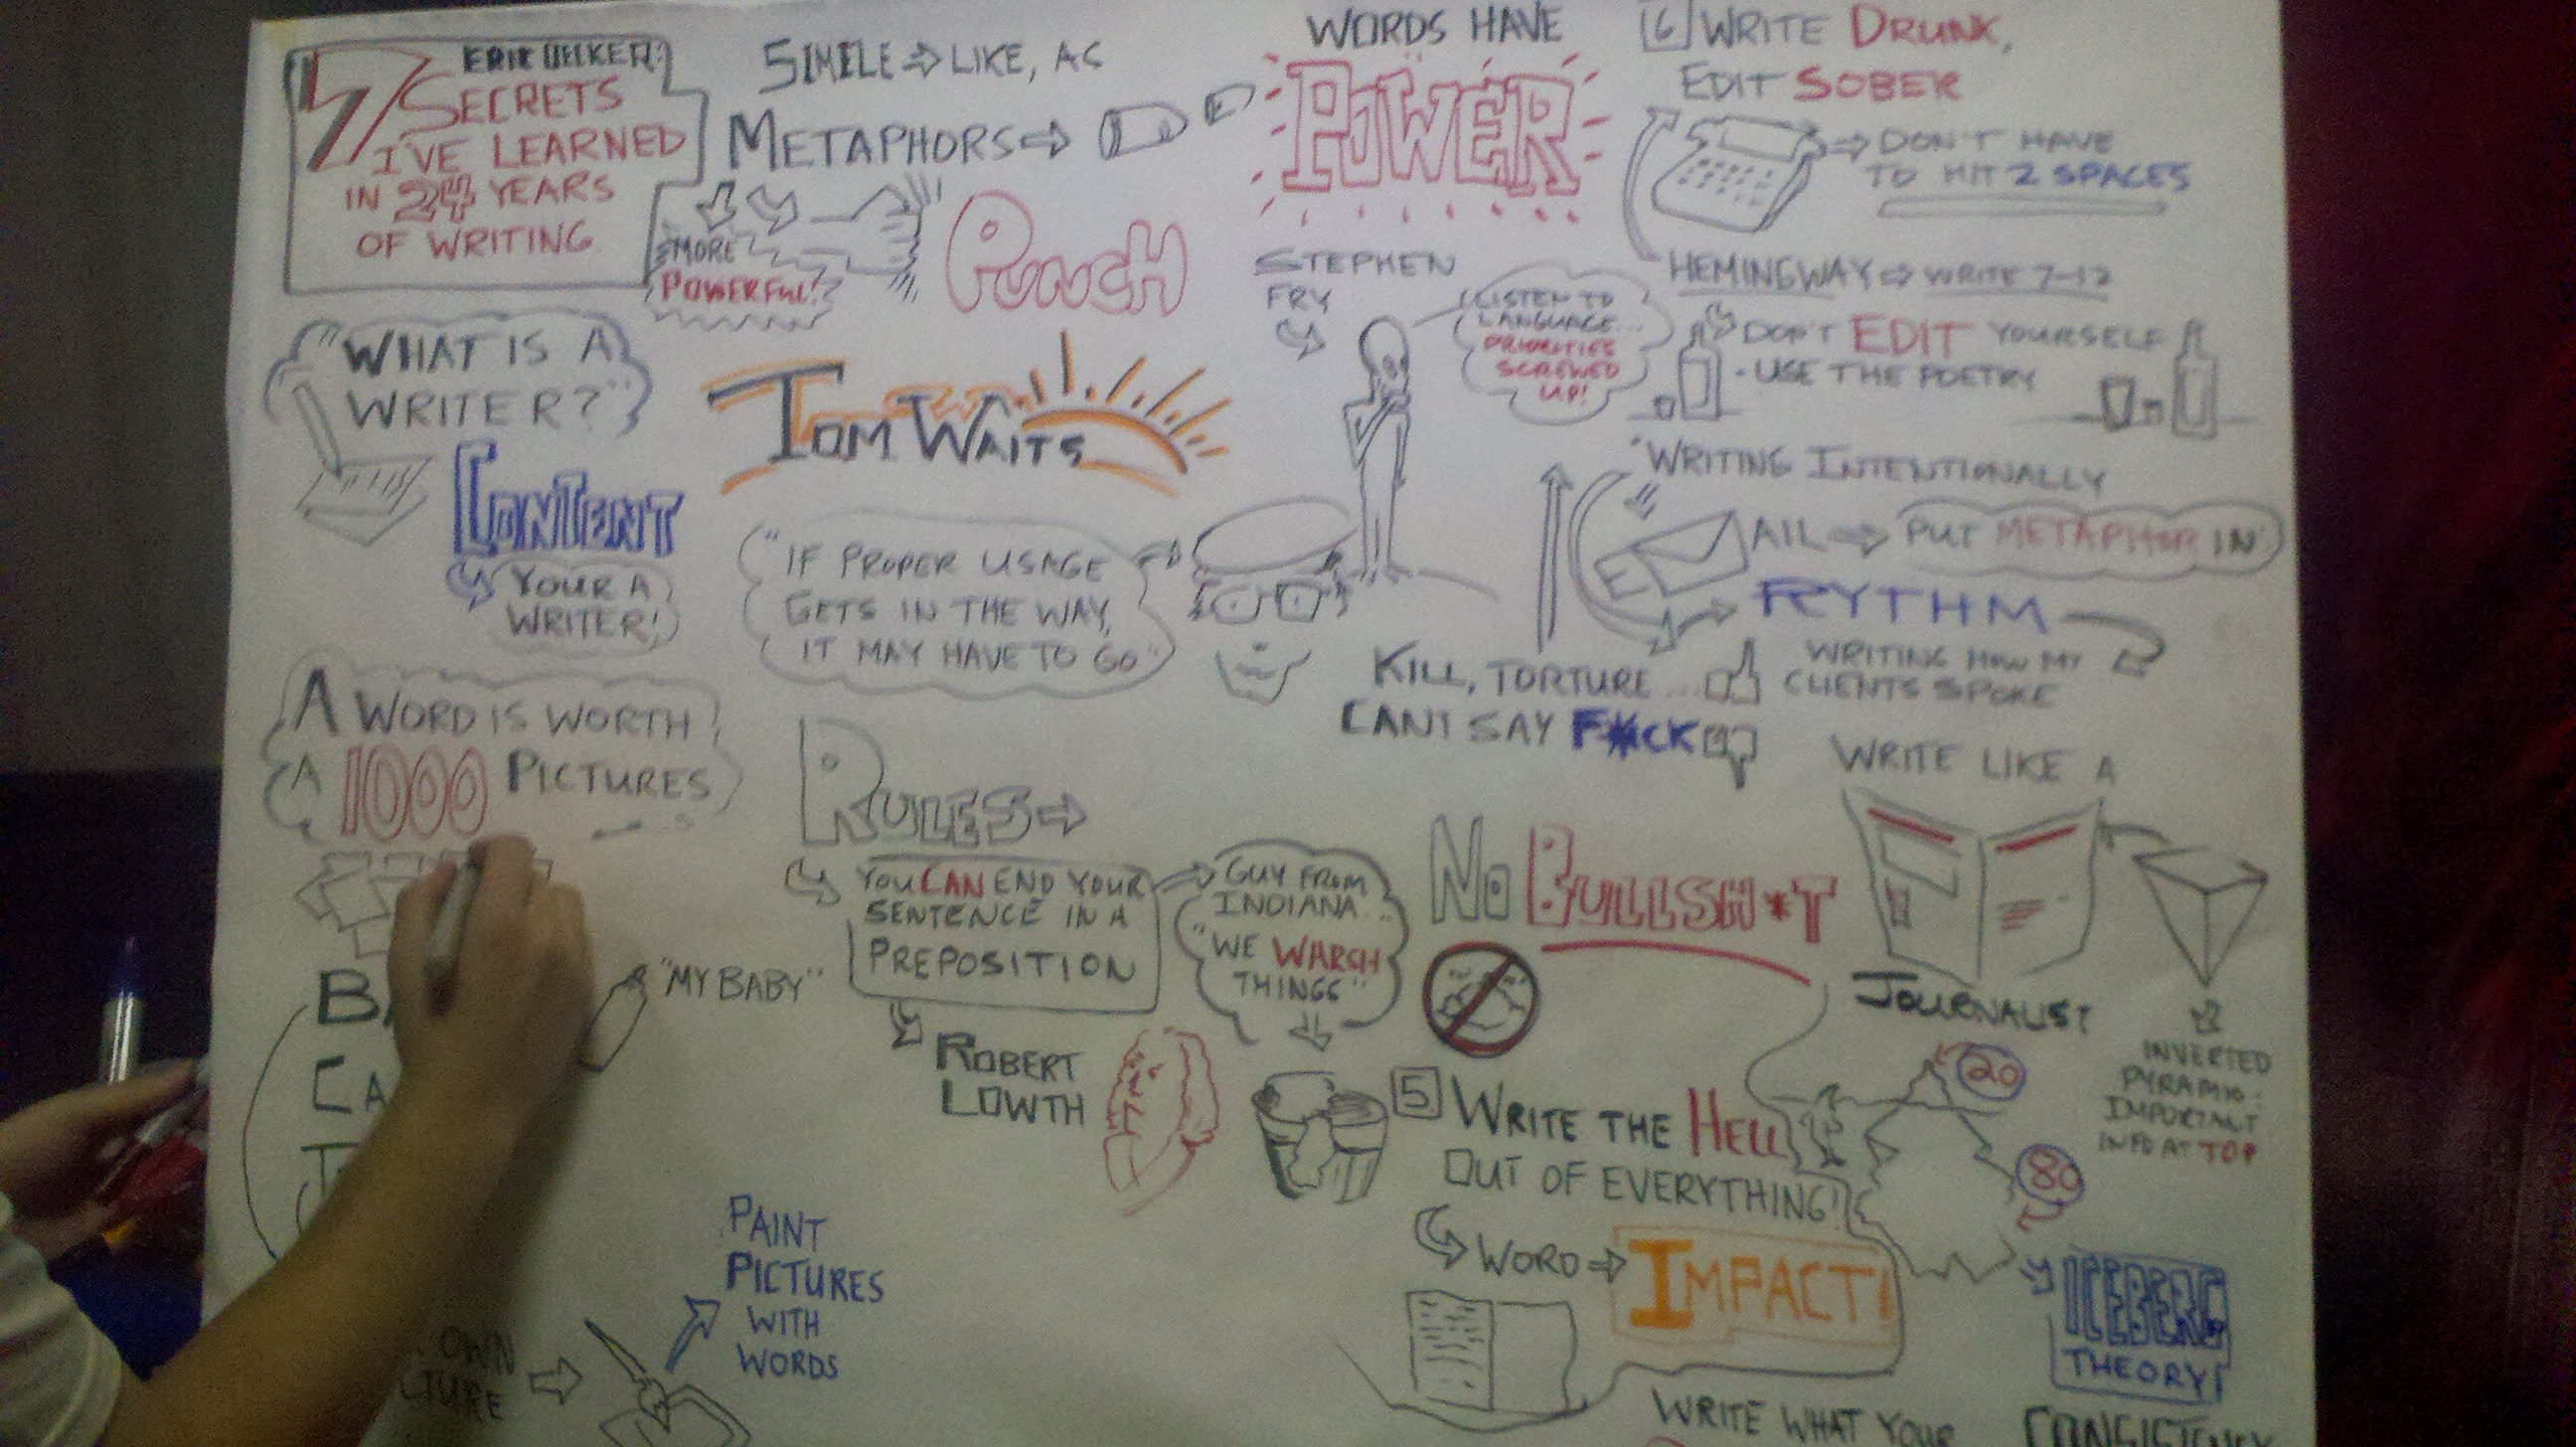 7 SECRETS
I'VE LEARNED
IN 24 YEARS
OF WRITING
SIMILE LIKE, AS
METAPHORS
MORE
POWERFUL!
PUNCH
"WHAT IS A
WRITER?"
CONTENT
YOUR A
WRITER!
A WORD IS WORTH
A 1000 PICTURES
"MY BABY"
OWN
PAINT
PICTURES
WITH
WORDS
TOM WAITS
"IF PROPER USAGE
GETS IN THE WAY,
IT MAY HAVE TO GO"
RULES
YOU CAN END YOUR
SENTENCE IN A
PREPOSITION
ROBERT
LOWTH
GUY FROM
INDIANA...
"WE WARSH
THINGS"
WORDS HAVE
POWER
STEPHEN
FRY
LISTEN TO
LANGUAGE...
PRIORITIES
SCREWED
UP!
KILL, TORTURE...
CANT SAY F*CK
NO BULLSH*T
5 WRITE THE HELL
OUT OF EVERYTHING!
WORD
IMPACT!
6 WRITE DRUNK,
EDIT SOBER
DON'T HAVE
TO HIT 2 SPACES
HEMINGWAY WRITE 7-12
DON'T EDIT YOURSELF
- USE THE POETRY
"WRITING INTENTIONALLY
E AIL PUT METAPHOR IN
RYTHM
WRITING HOW MY
CLIENTS SPOKE
WRITE LIKE A
JOURNALIST
INVERTED
PYRAMID:
IMPORTANT
INFO AT TOP
20
80
ICEBERG
THEORY!
WRITE WHAT YOUR
CONSISTENCY